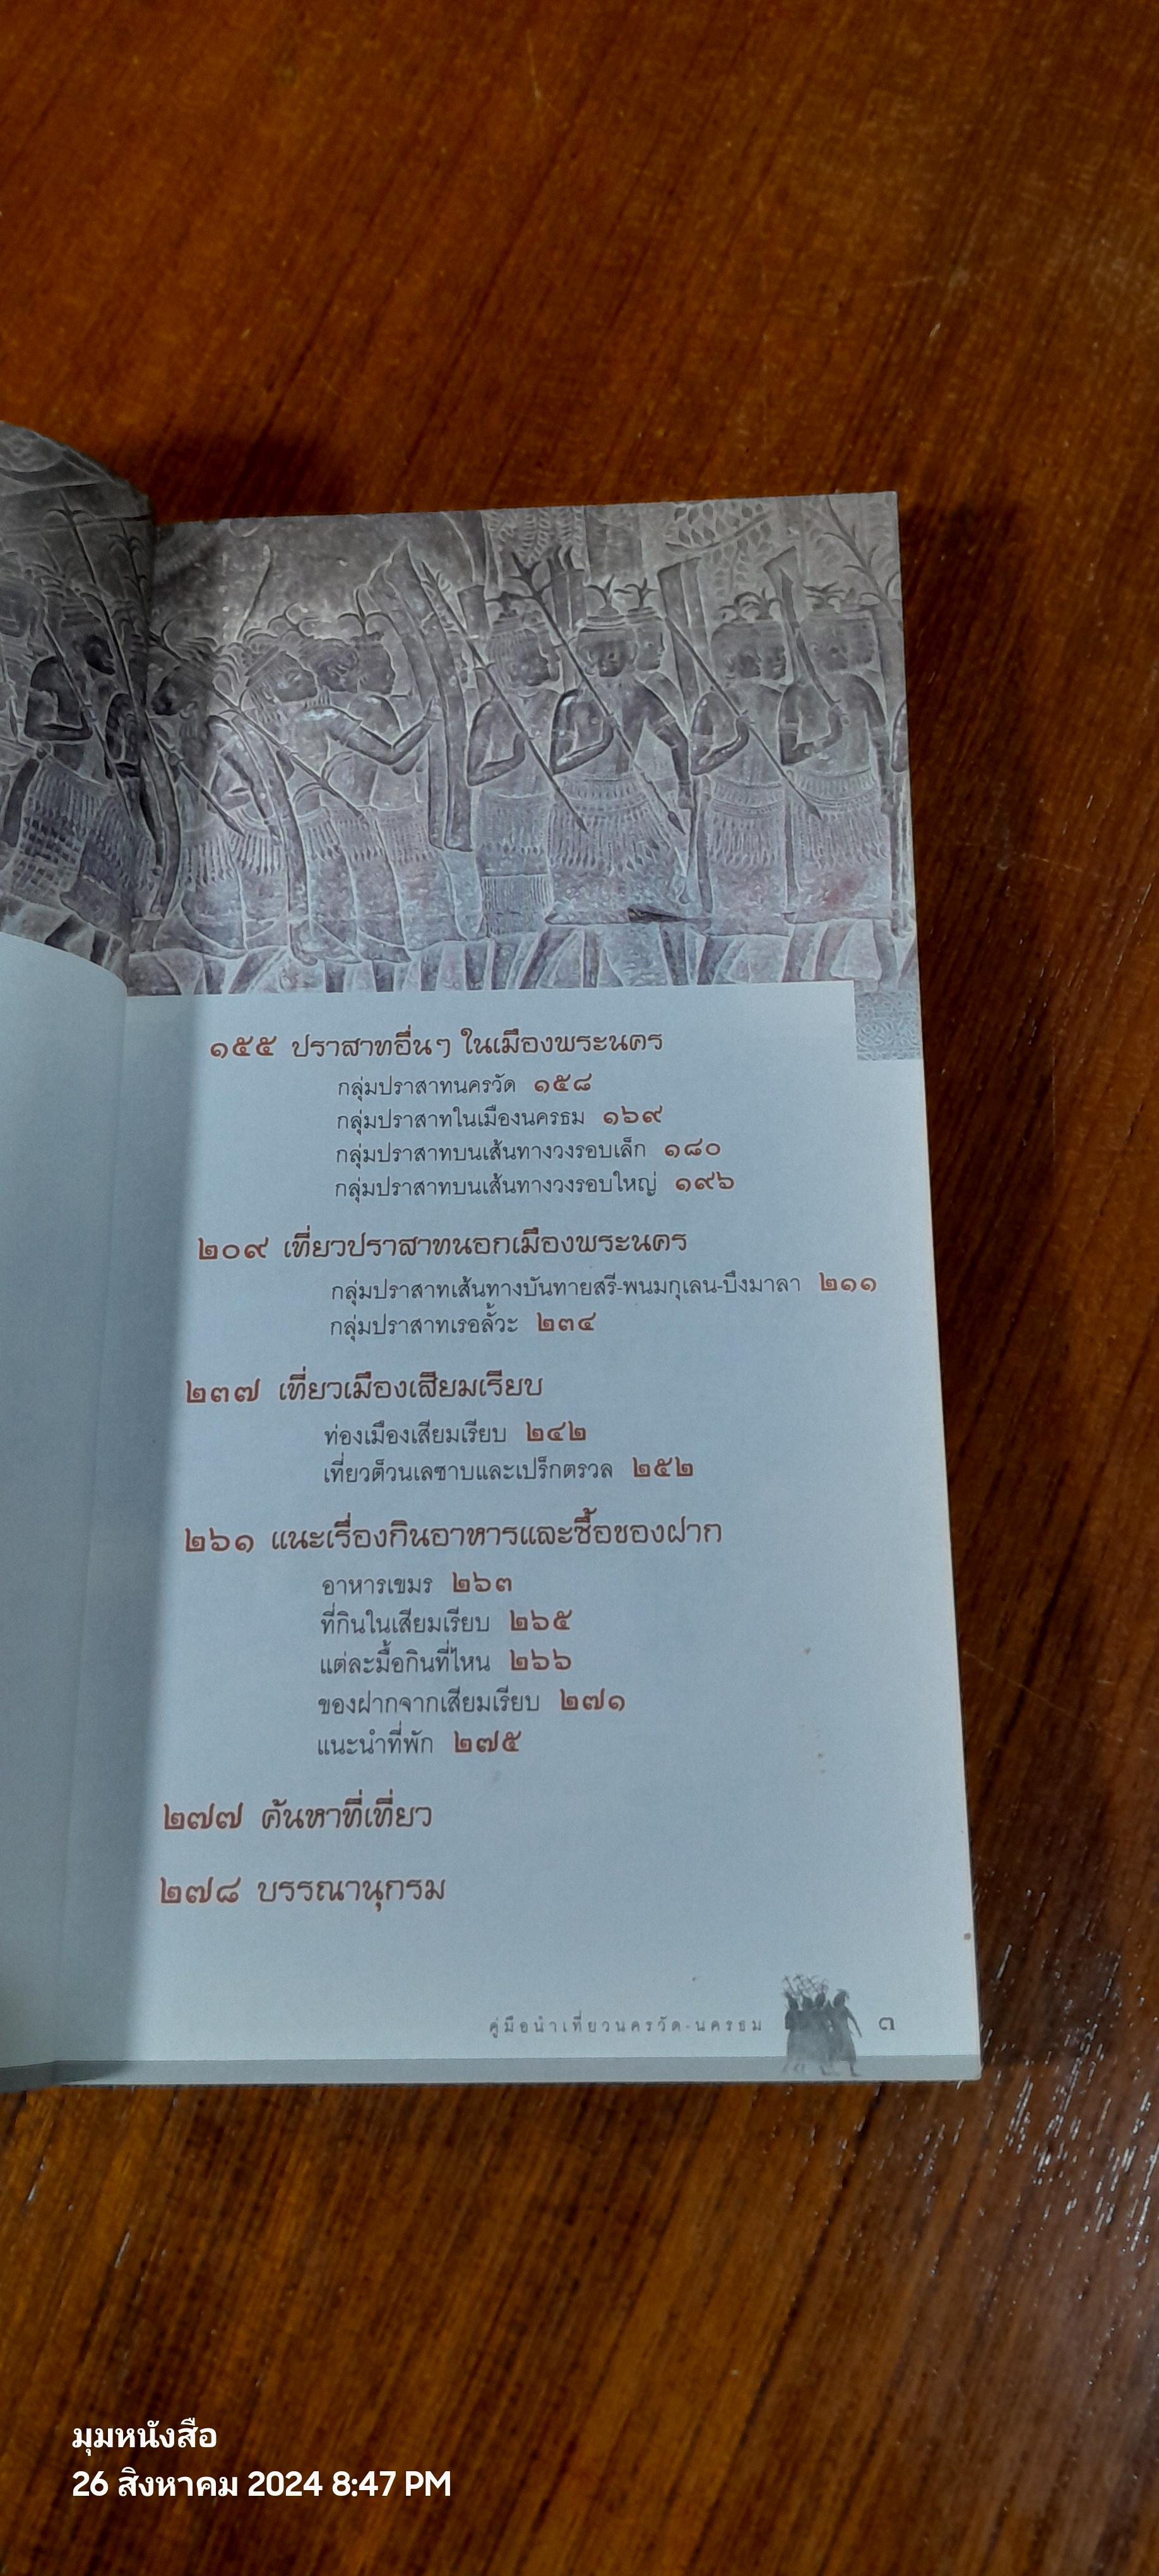 ๑๕๕ ปราสาทอื่นๆ ในเมืองพระนคร
กลุ่มปราสาทนครวัด ๑๕๘
กลุ่มปราสาทในเมืองนครธม ๑๖๙
กลุ่มปราสาทบนเส้นทางวงรอบเล็ก ๑๘๐
กลุ่มปราสาทบนเส้นทางวงรอบใหญ่ ๑๙๖
๒๐๙ เที่ยวปราสาทนอกเมืองพระนคร
กลุ่มปราสาทเส้นทางบันทายสรี-พนมกุเลน-บึงมาลา ๒๑๑
กลุ่มปราสาทเรอลั้วะ ๒๓๔
๒๓๗ เที่ยวเมืองเสียมเรียบ
ท่องเมืองเสียมเรียบ ๒๔๒
เที่ยวต็วนเลซาบและเปร็กตรวล ๒๕๒
๒๖๑ แนะเรื่องกินอาหารและซื้อของฝาก
อาหารเขมร ๒๖๓
ที่กินในเสียมเรียบ ๒๖๕
แต่ละมื้อกินที่ไหน ๒๖๖
ของฝากจากเสียมเรียบ ๒๗๑
แนะนำที่พัก ๒๗๕
๒๗๗ ค้นหาที่เที่ยว
๒๗๘ บรรณานุกรม
คู่มือนำเที่ยวนครวัด-นครธม ๓
มุมหนังสือ
26 สิงหาคม 2024 8:47 PM